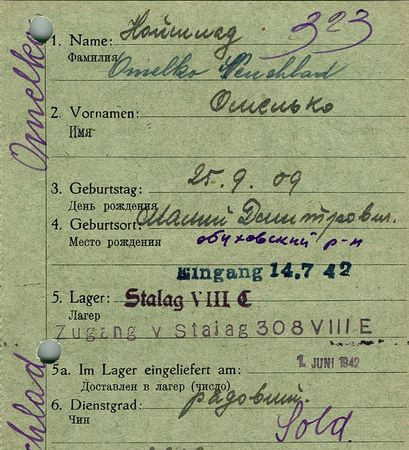 323
Omelko
1. Name: Нойшлад
Фамилия Omelko Neuchlad
2. Vornamen: Омелько
Имя
3. Geburtstag: 25.9.09
День рождения
4. Geburtsort: Малий Дмитрович.
Место рождения обуховский р-н
Eingang 14.7 42
5. Lager: Stalag VIII C
Лагер
Zugang v Stalag 308 VIII E
5a. Im Lager eingeliefert am: 1. JUNI 1942
Доставлен в лагер (число)
6. Dienstgrad: рядовий.
Чин Sold.
chlad